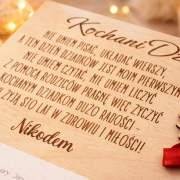 Kochani
NIE UMIEM PISAĆ, UKŁADAĆ WIERSZY,
A TEN DZIEŃ DZIADKÓW JEST MOIM PIERWSZYM
NIE UMIEM CZYTAĆ, NIE UMIEM LICZYĆ
Z POMOCĄ RODZICÓW PRAGNĘ WIĘC ŻYCZYĆ
KOCHANYM DZIADKOM DUŻO RADOŚCI -
STO LAT W ZDROWIU I MIŁOŚCI!
Nikodem